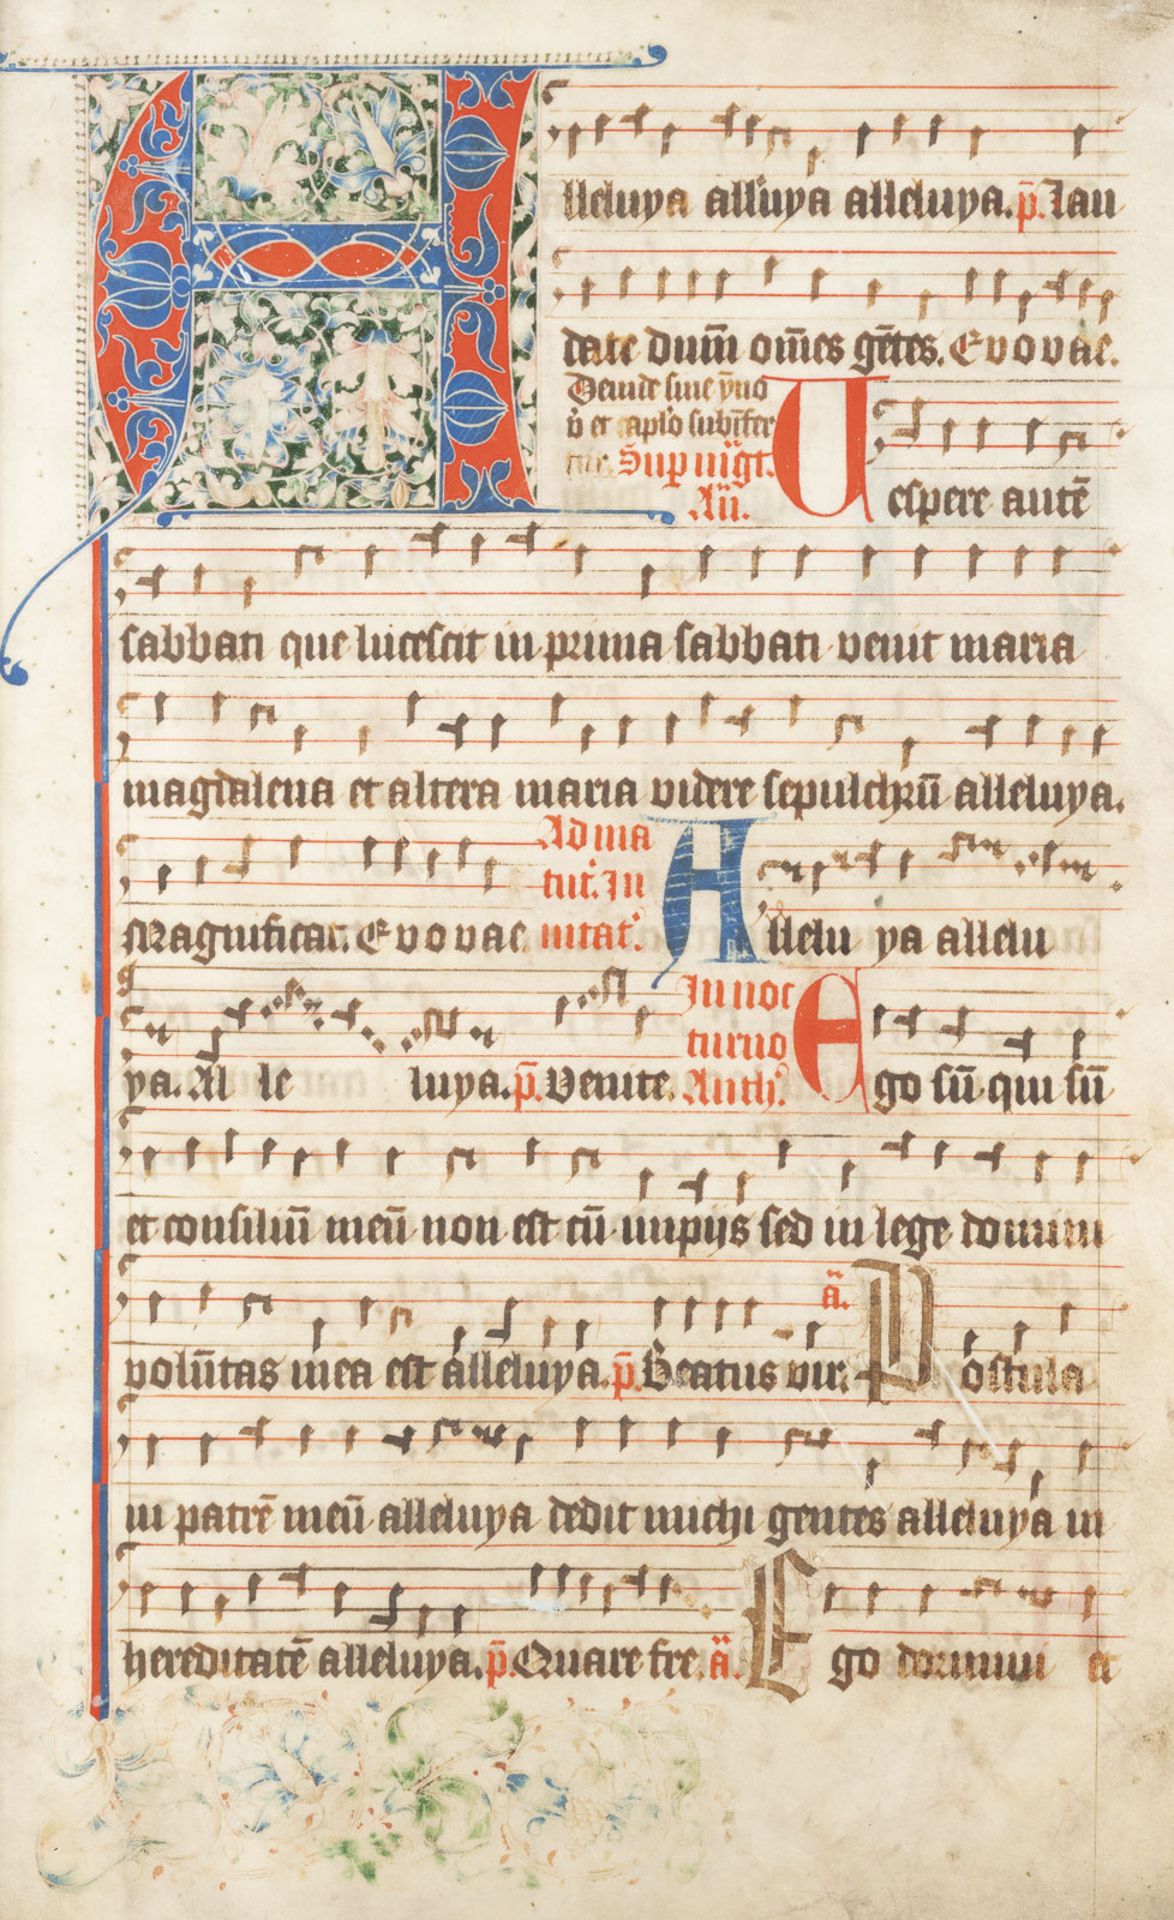 Alleluya all'uya alleluya. p̄. Lau
date dum̄ om̄es gētes. Evovae.
Deinde sine ẏno
v̇ et caplo subīfer
tur. Sup mḡt.
An̄.
Vespere autē
sabbati que lucescit in prima sabbati venit maria
magdalena et altera maria videre sepulchrū alleluya.
Magnificat. Evovae Ad ma
tut. In
uitat'.
Allelu ya allelu
ya. Al le luya. p̄. Venite. In noc
turno
Anth'.
Ego sū qui sū
et consiliū meū non est cū impijs sed in lege domini
volūtas mea est alleluya. p̄. Beatus vir. ā. Postula
ui patrē meū alleluya dedit michi gentes alleluya in
hereditatē alleluya. p̄. Quare fre. ā. Ego dormiui et